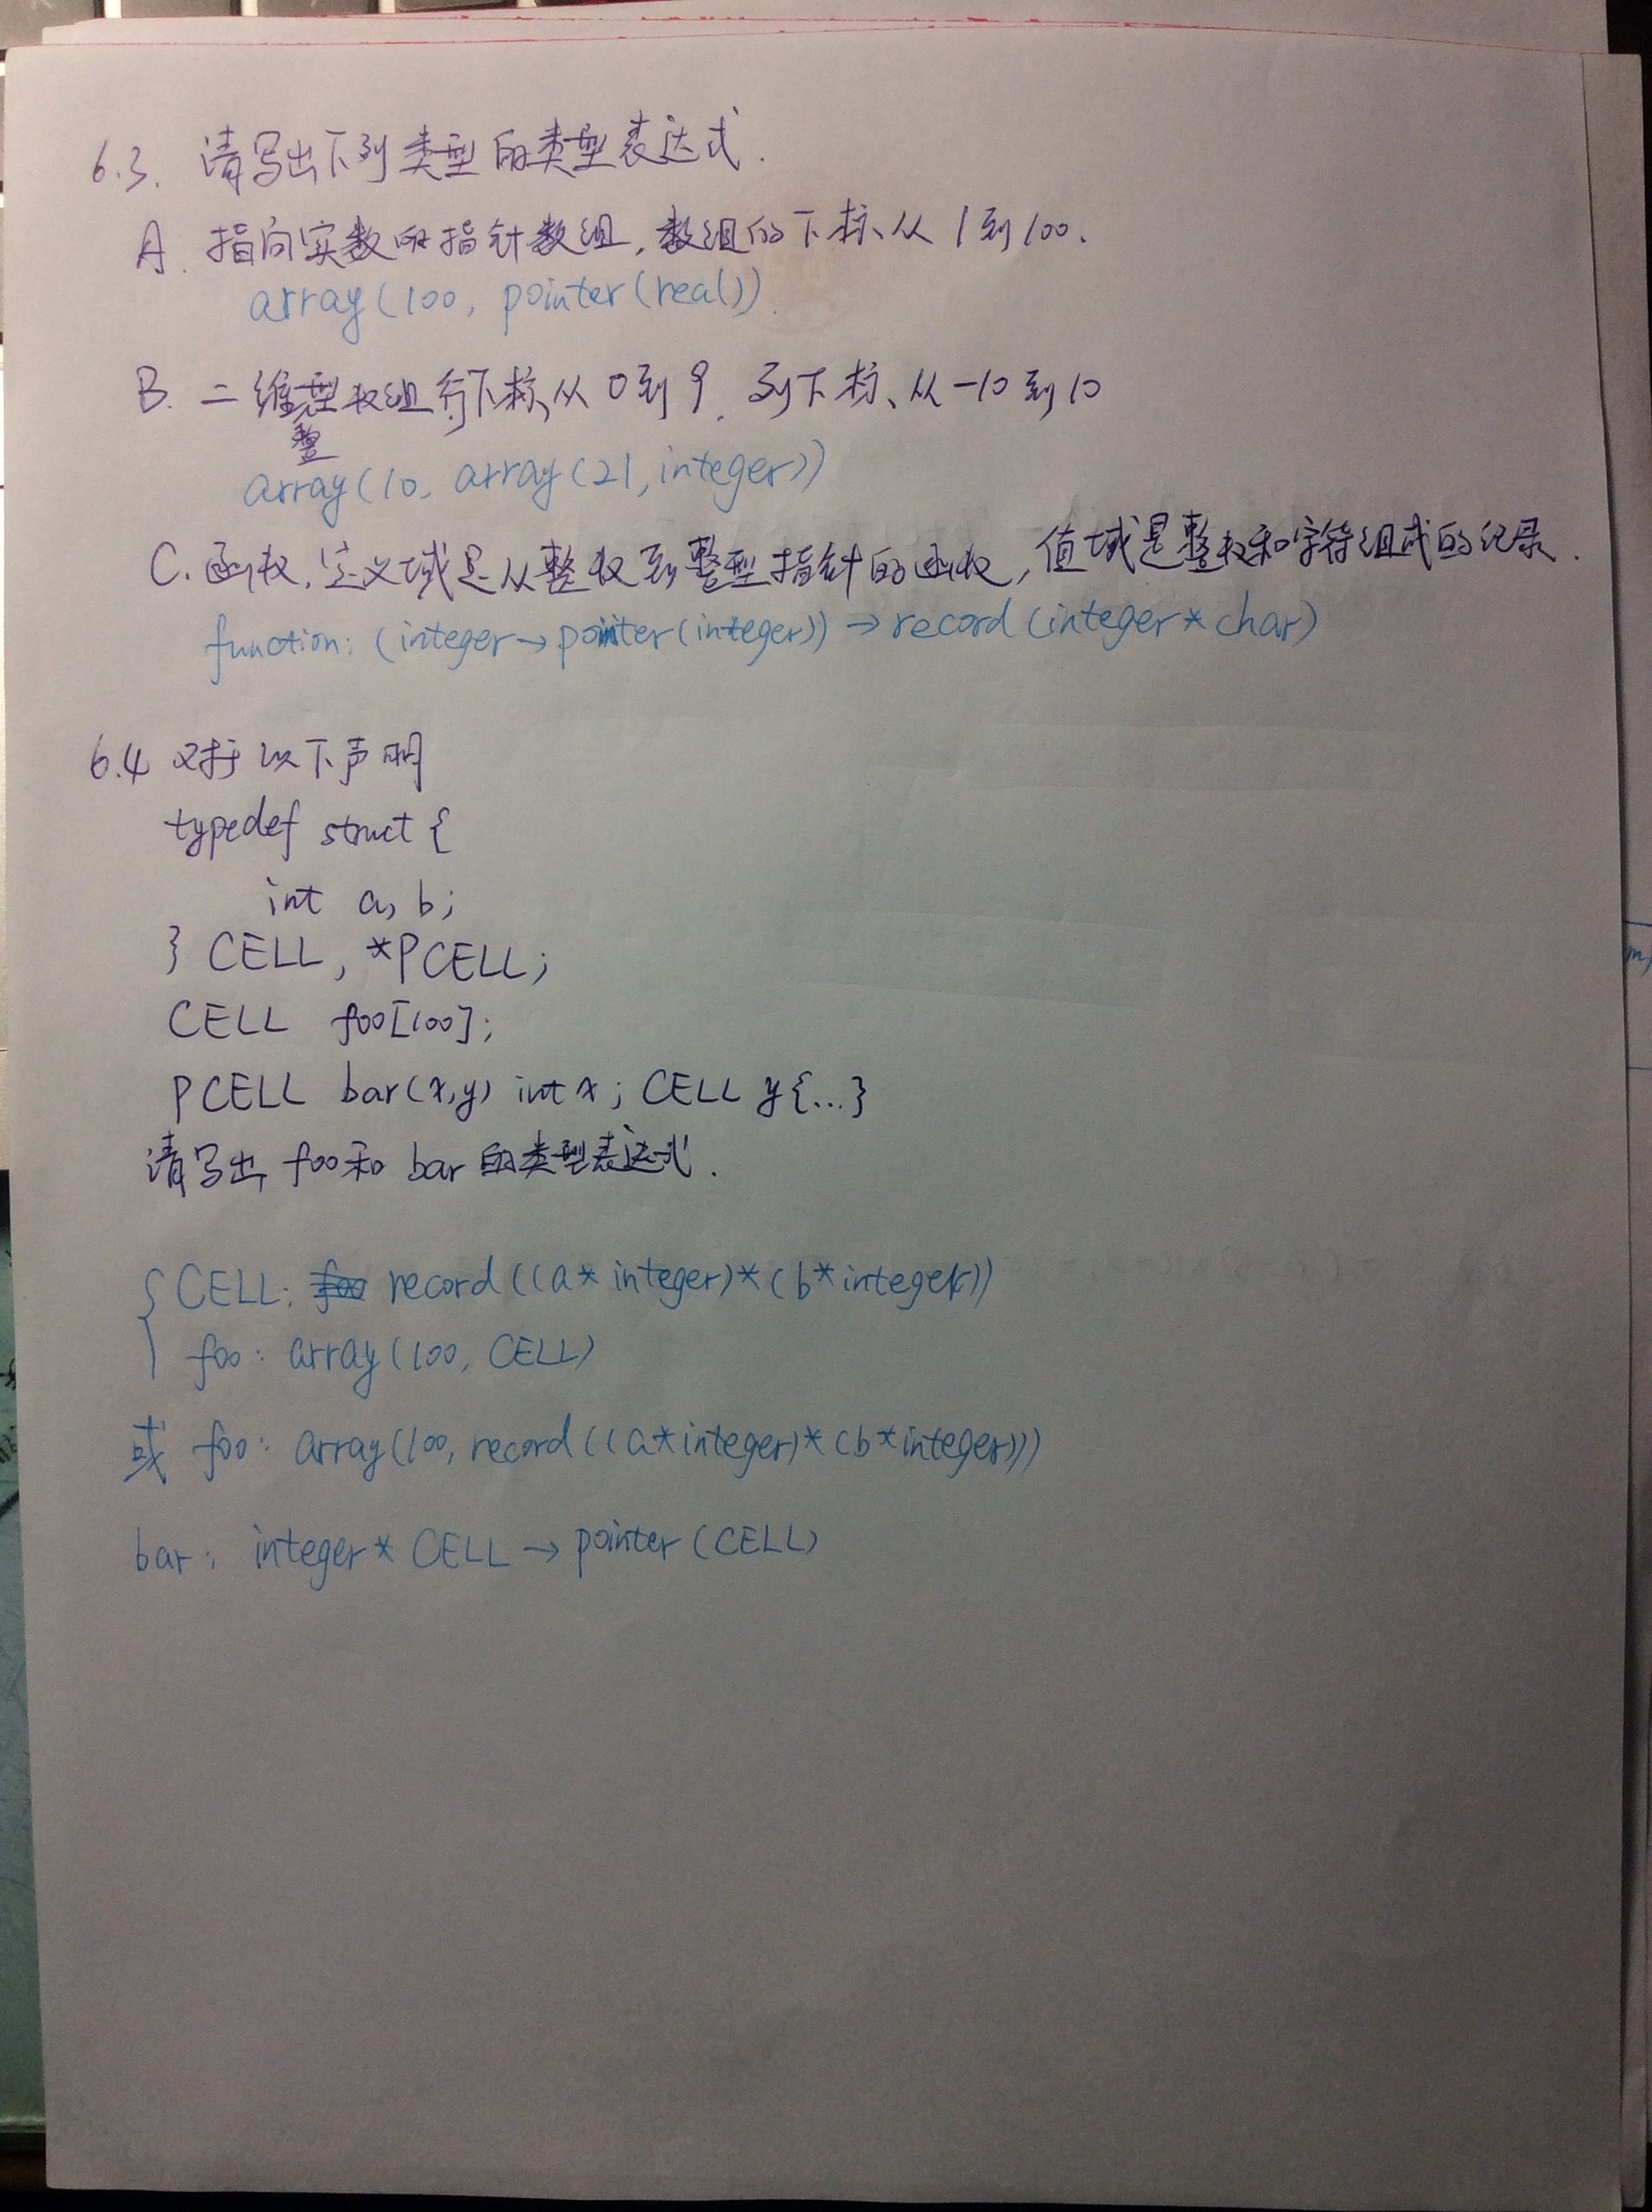 6.3. 请写出下列类型的类型表达式.
A. 指向实数的指针数组,数组的下标从1到100.
array(100, pointer(real))
B. 二维整型数组行下标从0到9, 列下标从-10到10
array(10, array(21, integer))
C. 函数,定义域是从整数到整型指针的函数,值域是整数和字符组成的纪录.
function: (integer→pointer(integer))→record(integer*char)
6.4 对于以下声明
typedef struct {
int a, b;
} CELL, *PCELL;
CELL foo[100];
PCELL bar(x,y) int x; CELL y{...}
请写出 foo和 bar 的类型表达式.
CELL: record((a*integer)*(b*integer))
foo: array(100, CELL)
或 foo: array(100, record((a*integer)*(b*integer)))
bar: integer * CELL → pointer(CELL)